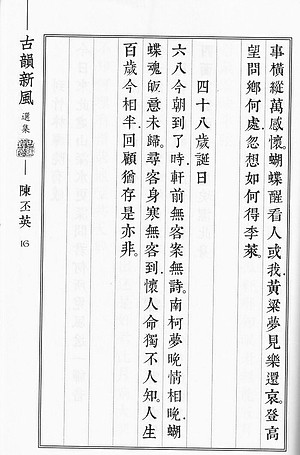 事橫縱萬感懷。蝴蝶醒看人或我。黃粱夢見樂還哀。登高
望問鄉何處。忽想如何得李萊。
四十八歲誕日
六八今朝到了時。軒前無客案無詩。南柯夢晚情相晚。蝴
蝶魂皈意未歸。尋客身寒無客到。懷人命獨不人知。人生
百歲今相半。回顧猶存是亦非。
古韻新風
選集
陳丕英
16